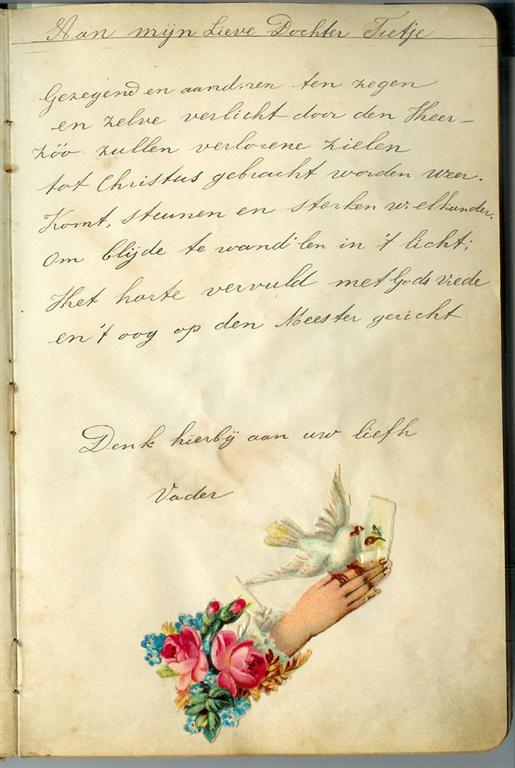 Aan mijn Lieve Dochter Tietje
Gezegend en aand'ren ten zegen
en zelve verlicht door den Heer –
zóó zullen verlorene zielen
tot Christus gebracht worden weer.
Komt, steunen en sterken w' elkander.
Om blijde te wand'len in 't licht;
Het harte vervuld met Gods vrede
en 't oog op den Meester gericht
Denk hierbij aan uw liefh
Vader